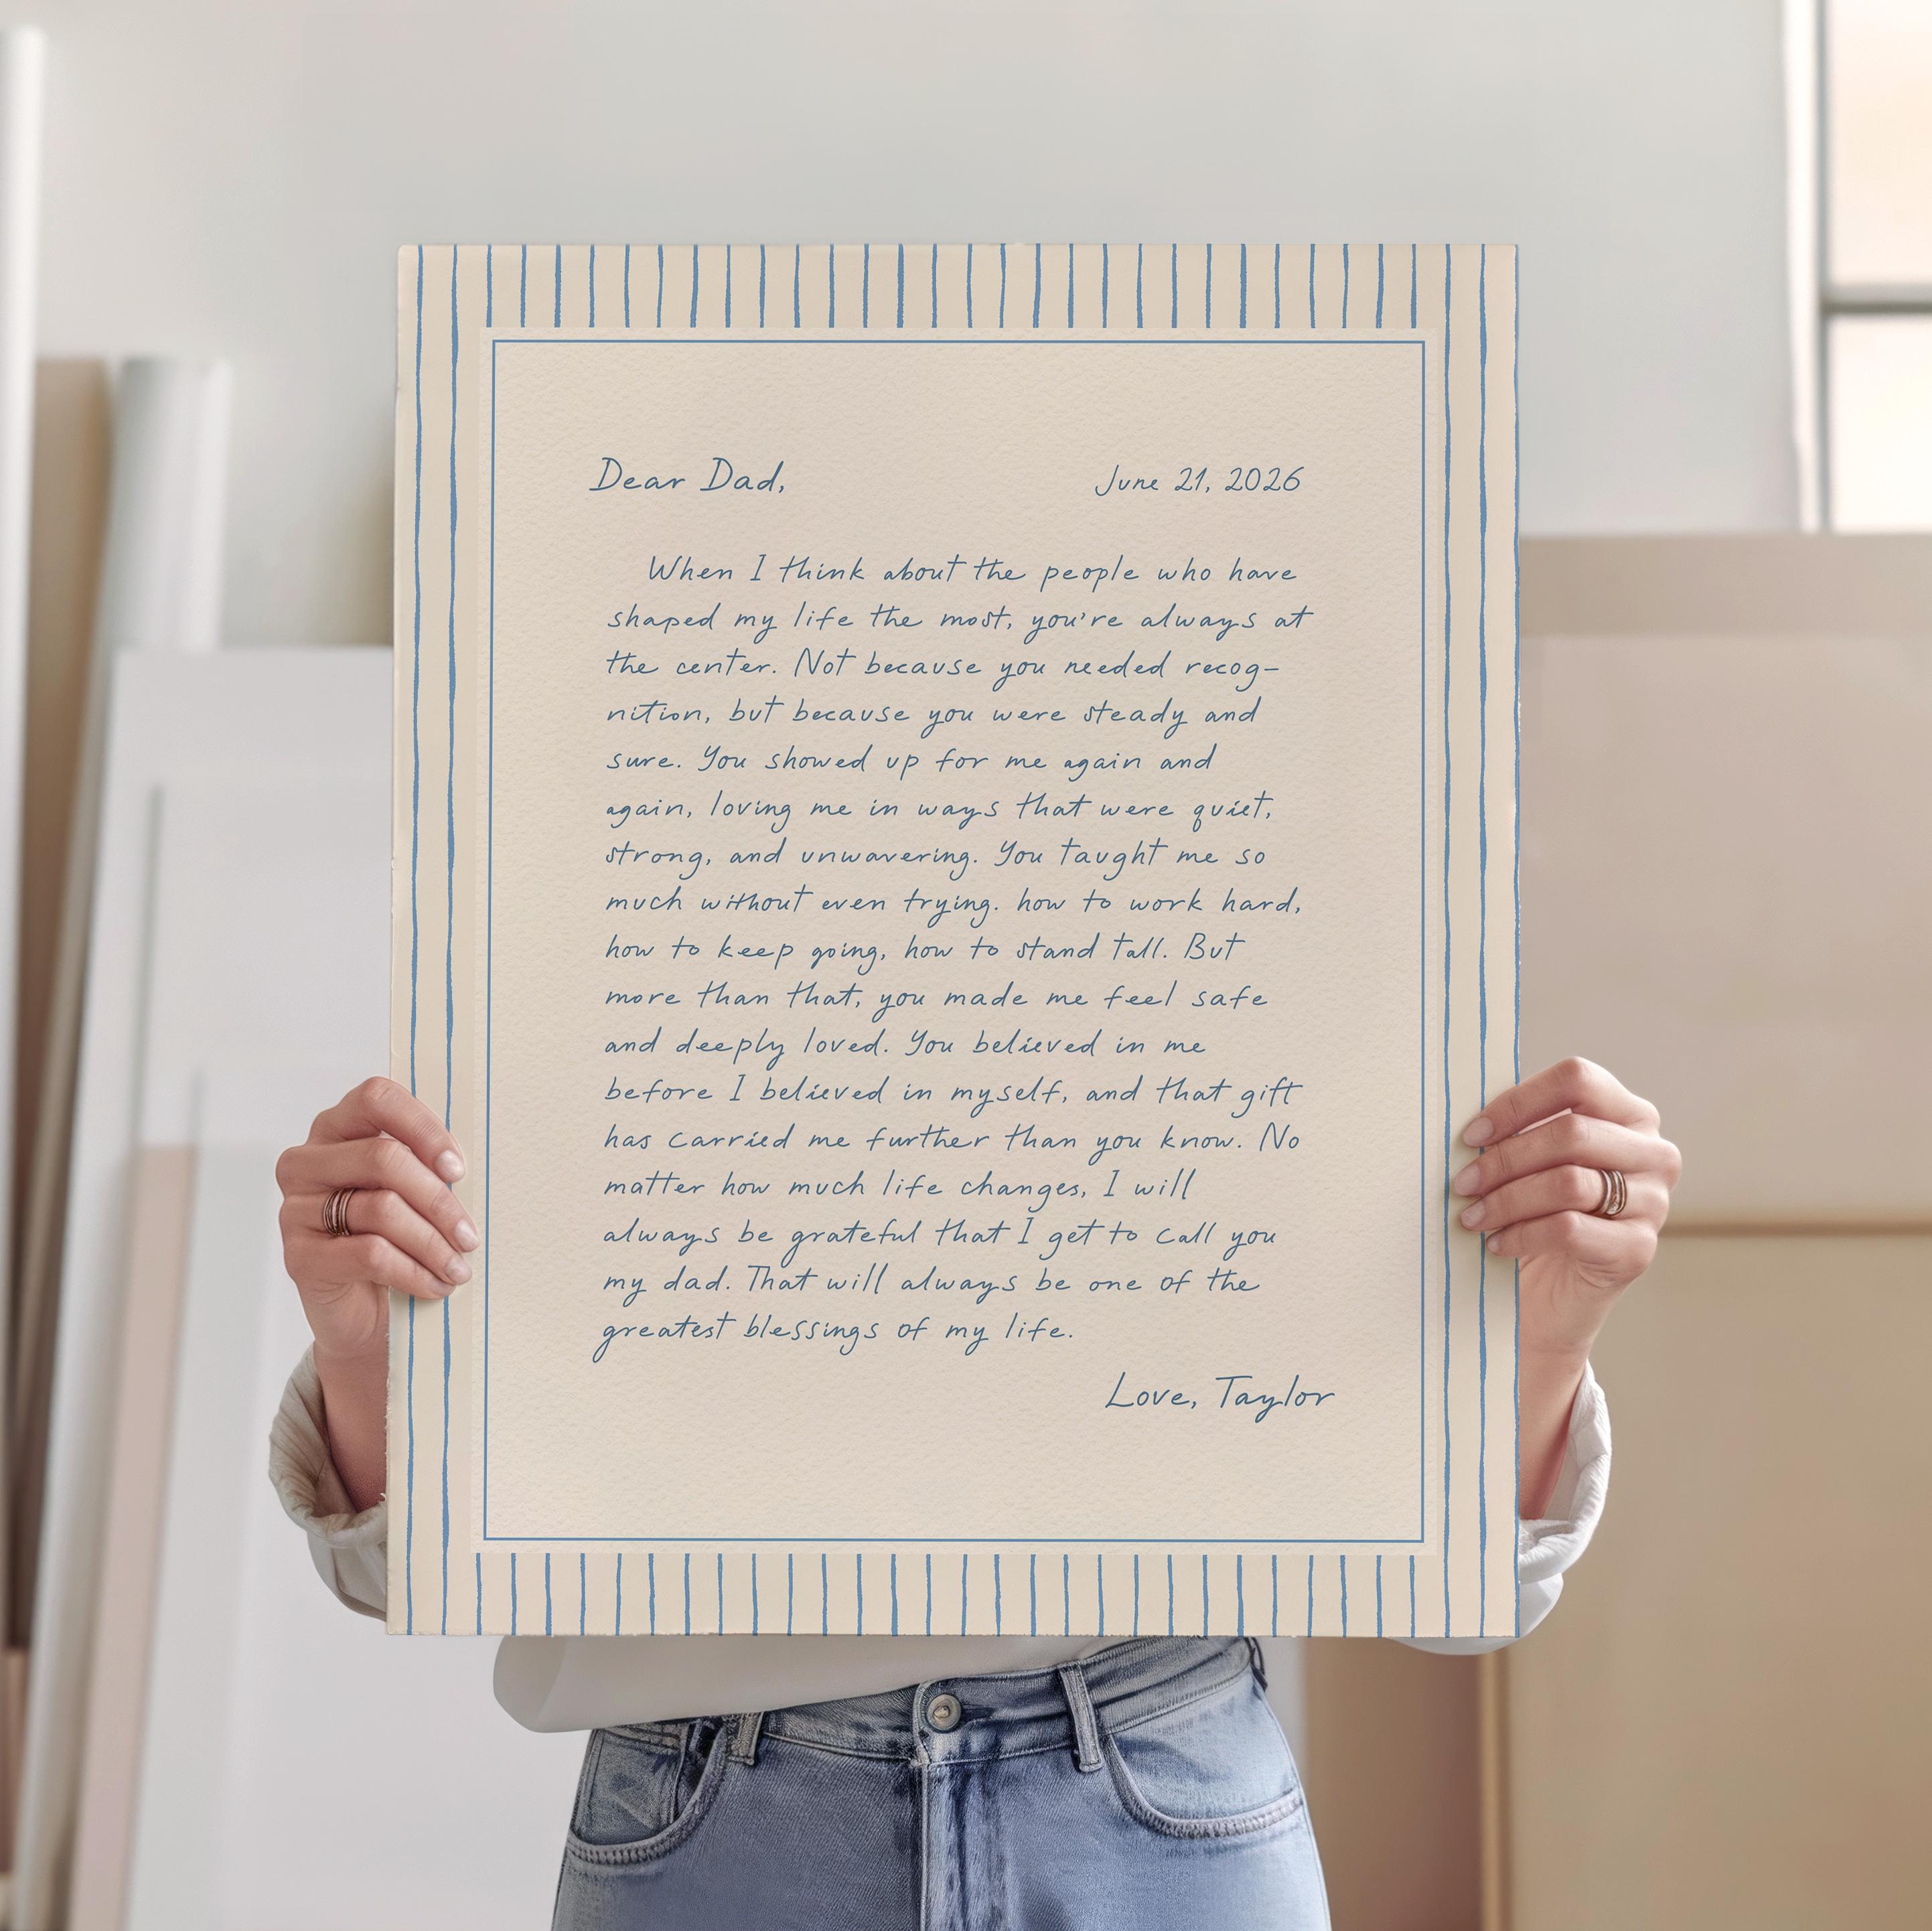 Dear Dad,
June 21, 2026
When I think about the people who have
shaped my life the most, you're always at
the center. Not because you needed recog-
nition, but because you were steady and
sure. You showed up for me again and
again, loving me in ways that were quiet,
strong, and unwavering. You taught me so
much without even trying. how to work hard,
how to keep going, how to stand tall. But
more than that, you made me feel safe
and deeply loved. You believed in me
before I believed in myself, and that gift
has carried me further than you know. No
matter how much life changes, I will
always be grateful that I get to call you
my dad. That will always be one of the
greatest blessings of my life.
Love, Taylor